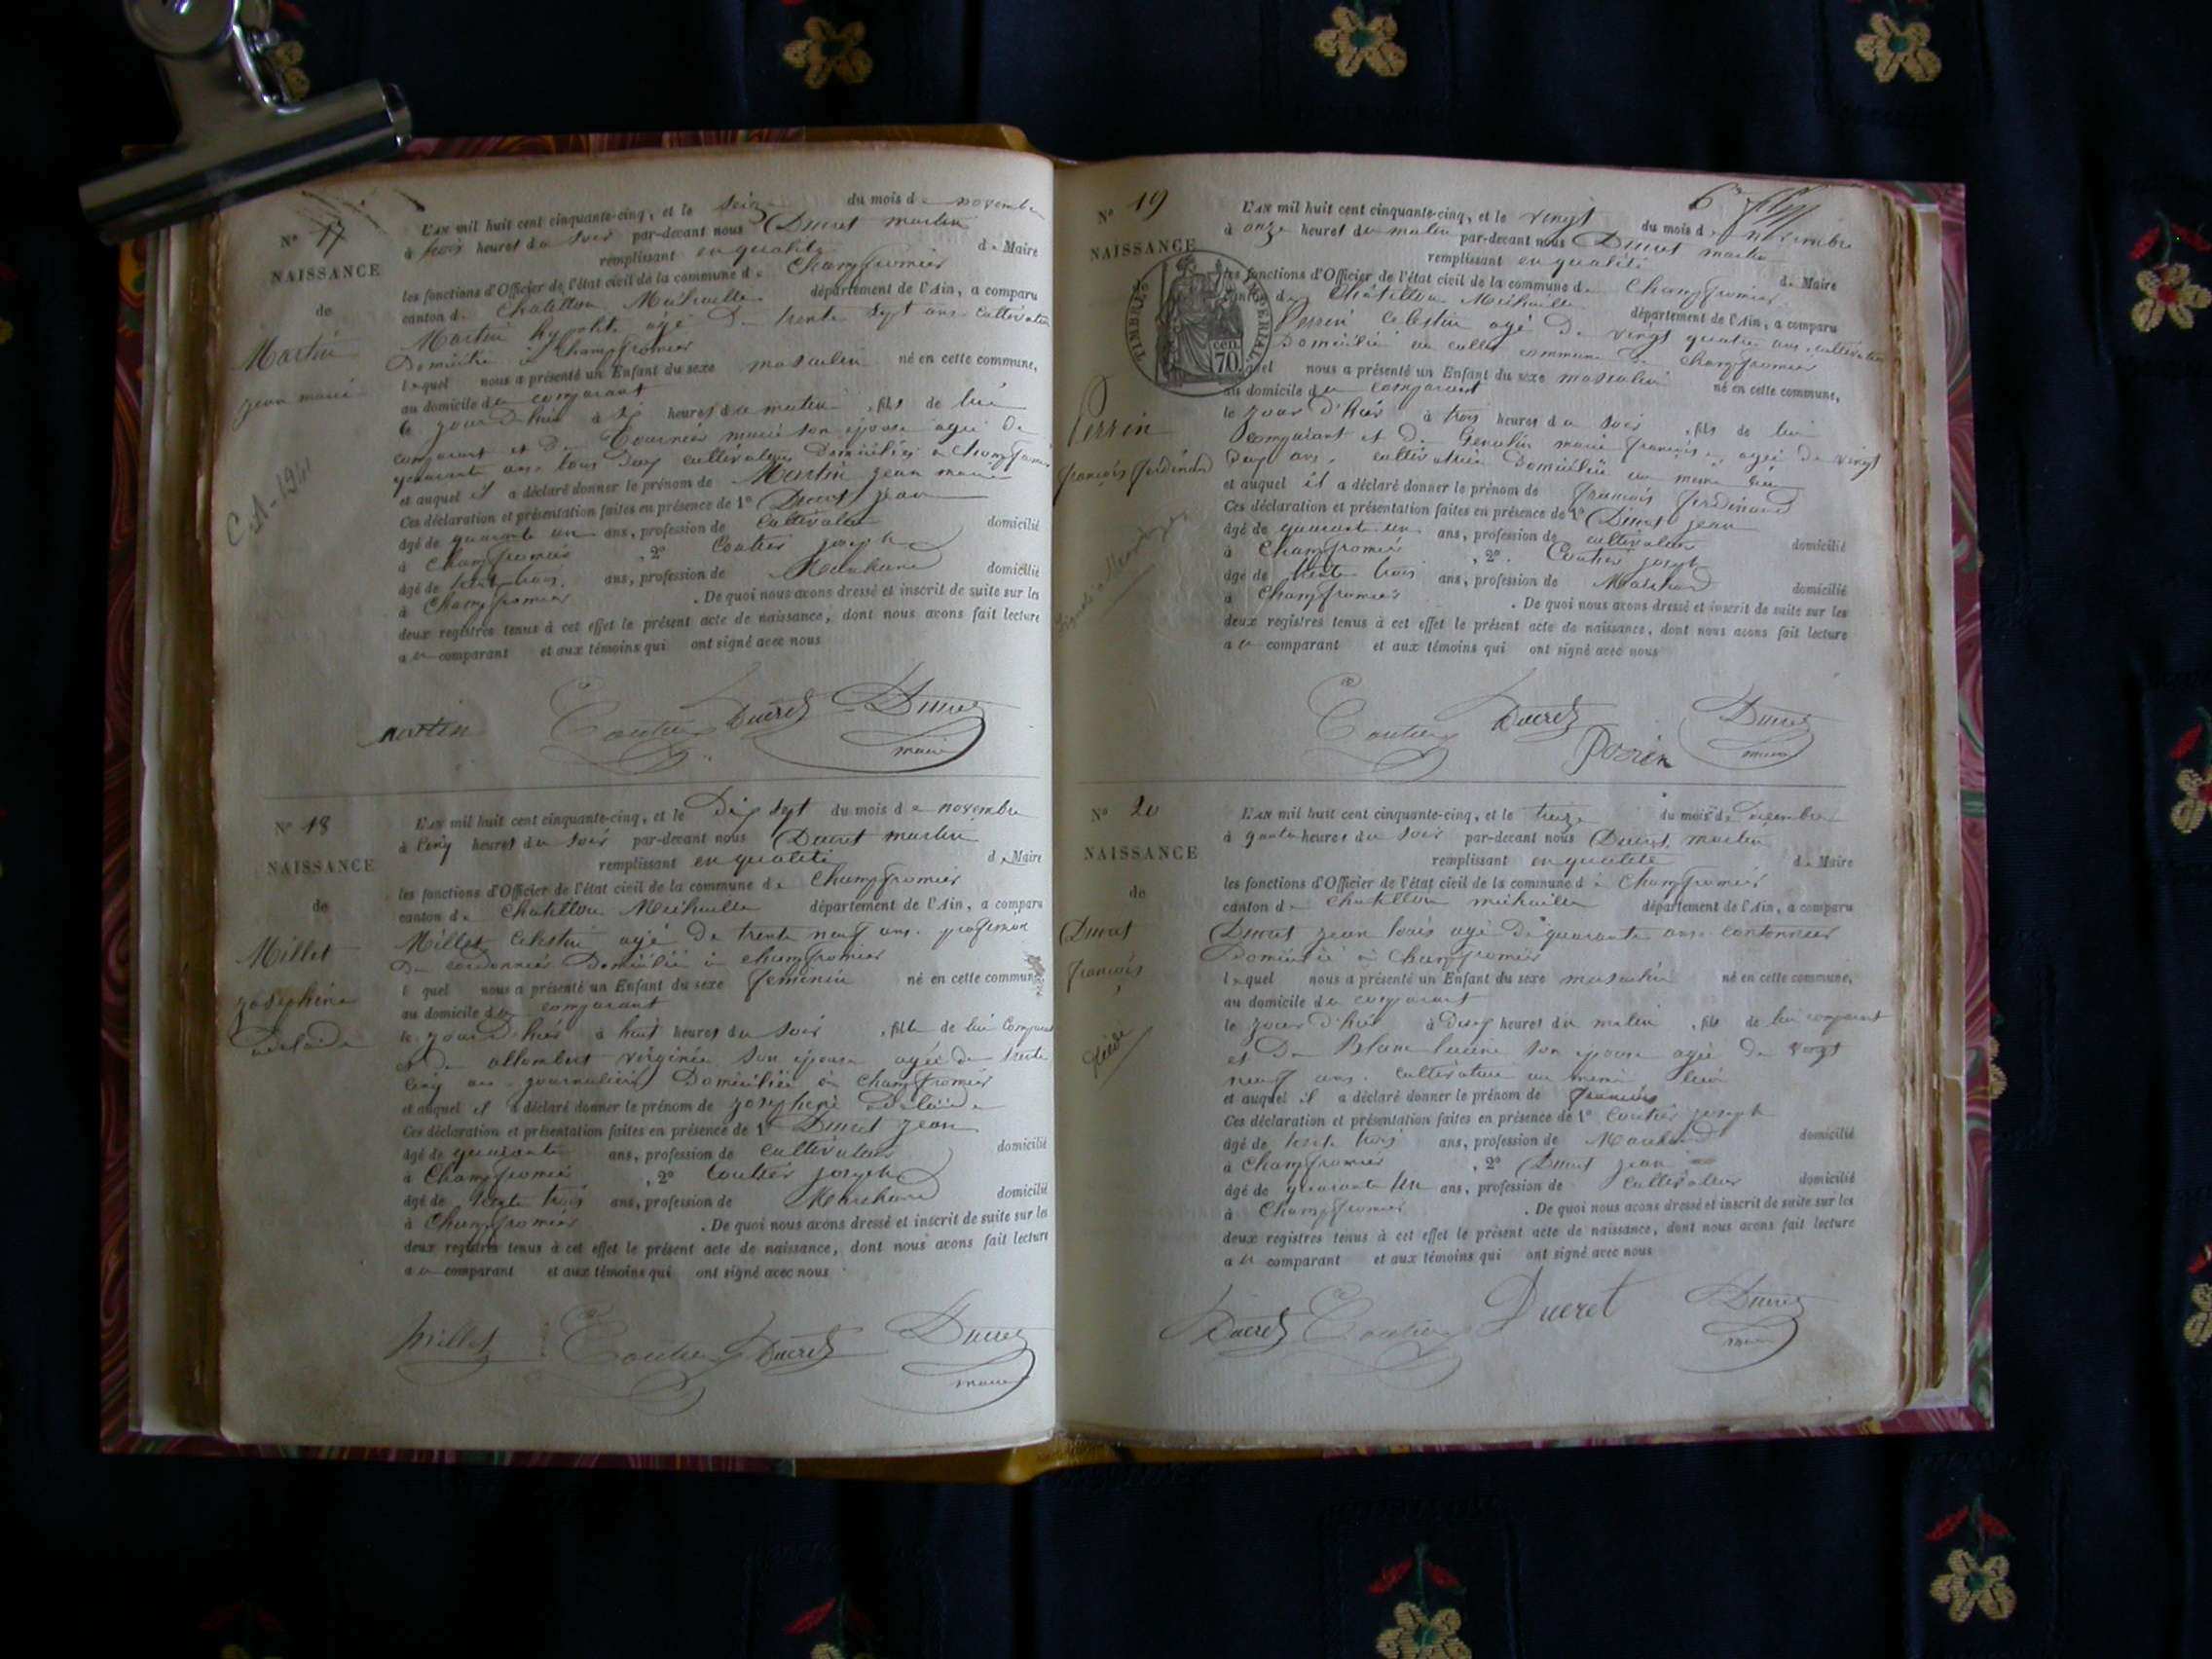 N° 17
NAISSANCE
de
Martin
jean marie
C 21-1941
L'AN mil huit cent cinquante-cinq, et le seize du mois de novembre
à trois heures du soir par-devant nous Ducret martin
remplissant en qualité de Maire
les fonctions d'Officier de l'état civil de la commune de Champfromier
canton de Chatillon Michaille département de l'Ain, a comparu
Martin hypolite agé de trente sept ans cultivateur
Domicilié à Champfromier
lequel nous a présenté un Enfant du sexe masculin né en cette commune,
au domicile du comparant
le jourd'hui à heures du matin , fils de lui
comparant et de Tournier marie son épouse agée de
quarante ans tous deux cultivateurs Domiciliés à Champfromier
et auquel il a déclaré donner le prénom de Martin jean marie
Ces déclaration et présentation faites en présence de 1° Ducret jean
âgé de quarante un ans, profession de cultivateur domicilié
à Champfromier , 2° Coutier joseph
âgé de trente trois ans, profession de Marchand domicilié
à Champfromier . De quoi nous avons dressé et inscrit de suite sur les
deux registres tenus à cet effet le présent acte de naissance, dont nous avons fait lecture
au comparant et aux témoins qui ont signé avec nous
martin Coutier Ducret Ducret
maire
N° 18
NAISSANCE
de
Millet
josephine
adelaide
L'AN mil huit cent cinquante-cinq, et le Dix sept du mois de novembre
à cinq heures du soir par-devant nous Ducret martin
remplissant en qualité de Maire
les fonctions d'Officier de l'état civil de la commune de Champfromier
canton de Chatillon Michaille département de l'Ain, a comparu
Millet Celestin agé de trente neuf ans profession
de cordonnier Domicilié à champfromier
lequel nous a présenté un Enfant du sexe feminin né en cette commune,
au domicile du comparant
le jour d'hier à huit heures du soir , fille de lui Comparant
et de allombert virginie son epouse agée de trente
cinq ans journalière Domiciliée à Champfromier
et auquel il a déclaré donner le prénom de josephine adelaide
Ces déclaration et présentation faites en présence de 1° Ducret jean
âgé de quarante ans, profession de cultivateur domicilié
à Champfromier , 2° Coutier joseph
âgé de trente trois ans, profession de Marchand domicilié
à Champfromier . De quoi nous avons dressé et inscrit de suite sur les
deux registres tenus à cet effet le présent acte de naissance, dont nous avons fait lecture
au comparant et aux témoins qui ont signé avec nous
Millet Coutier Ducret Ducret
maire
N° 19
NAISSANCE
TIMBRE IMPÉRIAL
70 cen.
Perrin
françois ferdinand
L'AN mil huit cent cinquante-cinq, et le vingt du mois de novembre
à onze heures du matin par-devant nous Ducret martin
remplissant en qualité de Maire
les fonctions d'Officier de l'état civil de la commune de Champfromier
canton de Châtillon Michaille département de l'Ain, a comparu
Perrin Celestin agé de vingt quatre ans, cultivateur
Domicilié commune de Champfromier
lequel nous a présenté un Enfant du sexe masculin né en cette commune,
au domicile du comparant
le jour d'hier à trois heures du soir , fils de lui
comparant et de marie françoise agée de vingt
Deux ans, cultivatrice Domiciliée au même lieu
et auquel il a déclaré donner le prénom de françois ferdinand
Ces déclaration et présentation faites en présence de 1° Ducret jean
âgé de quarante un ans, profession de cultivateur domicilié
à Champfromier , 2° Coutier joseph
âgé de trente trois ans, profession de Marchand domicilié
à Champfromier . De quoi nous avons dressé et inscrit de suite sur les
deux registres tenus à cet effet le présent acte de naissance, dont nous avons fait lecture
au comparant et aux témoins qui ont signé avec nous
Coutier Ducret Perrin Ducret
maire
N° 20
NAISSANCE
de
Ducret
françois
L'AN mil huit cent cinquante-cinq, et le treize du mois de decembre
à quatre heures du soir par-devant nous Ducret martin
remplissant en qualité de Maire
les fonctions d'Officier de l'état civil de la commune de Champfromier
canton de Chatillon michaille département de l'Ain, a comparu
Ducret jean louis agé de quarante ans cantonnier
Domicilié à Champfromier
lequel nous a présenté un Enfant du sexe masculin né en cette commune,
au domicile du comparant
le jour d'hier à deux heures du matin , fils de lui comparant
et De Blanc lucine son epouse agée de vingt
neuf ans. cultivatrice au meme lieu
et auquel il a déclaré donner le prénom de françois
Ces déclaration et présentation faites en présence de 1° Coutier joseph
âgé de trente trois ans, profession de Marchand domicilié
à Champfromier , 2° Ducret jean
âgé de quarante un ans, profession de cultivateur domicilié
à Champfromier . De quoi nous avons dressé et inscrit de suite sur les
deux registres tenus à cet effet le présent acte de naissance, dont nous avons fait lecture
au comparant et aux témoins qui ont signé avec nous
Ducret Coutier Ducret Ducret
maire